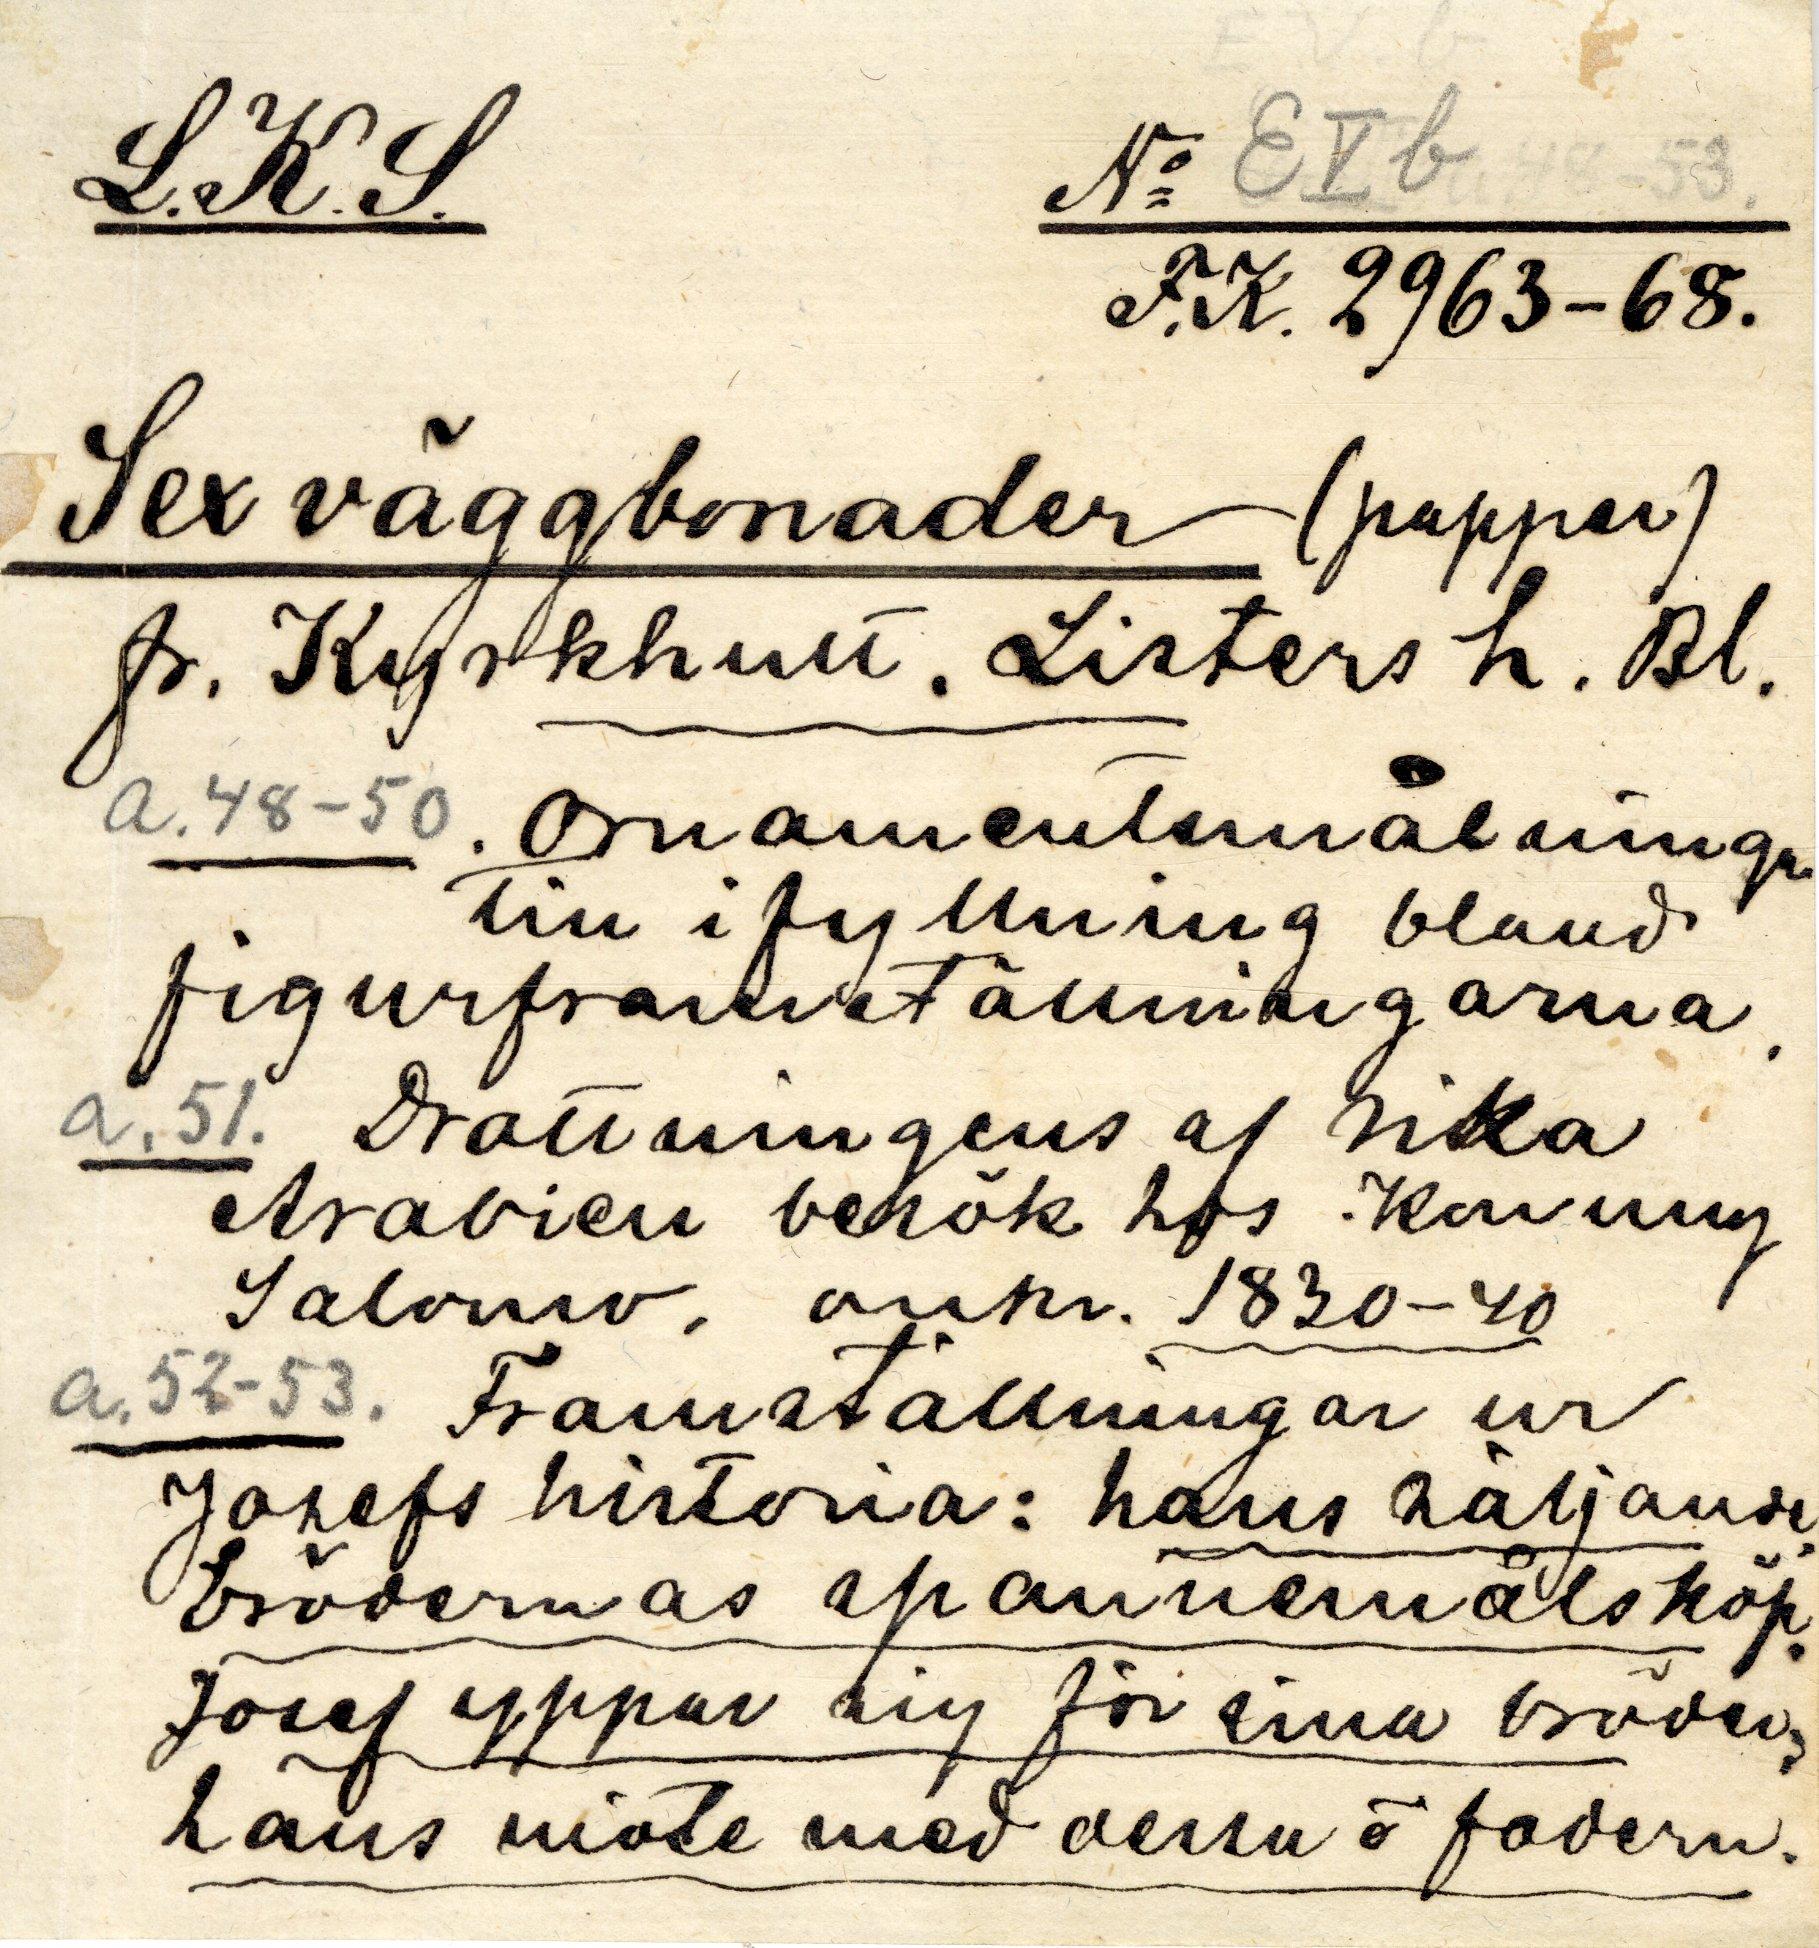 L.K.S.
No E V b a.48-53.
F.K. 2963-68.
Sex väggbonader (papper)
fr. Kyrkhult. Listers h. Bl.
a.48-50. Ornamentsmålningr.
till ifyllning bland
figurframställningarna.
a.51. Drottningens af rika
Arabien besök hos Konung
Salomo, omkr. 1830-40
a.52-53. Framställningar ur
Josefs historia: hans säljande,
brödernas spannemålsköp,
Josef yppar sig för sina bröder,
hans möte med dessa o fadern.